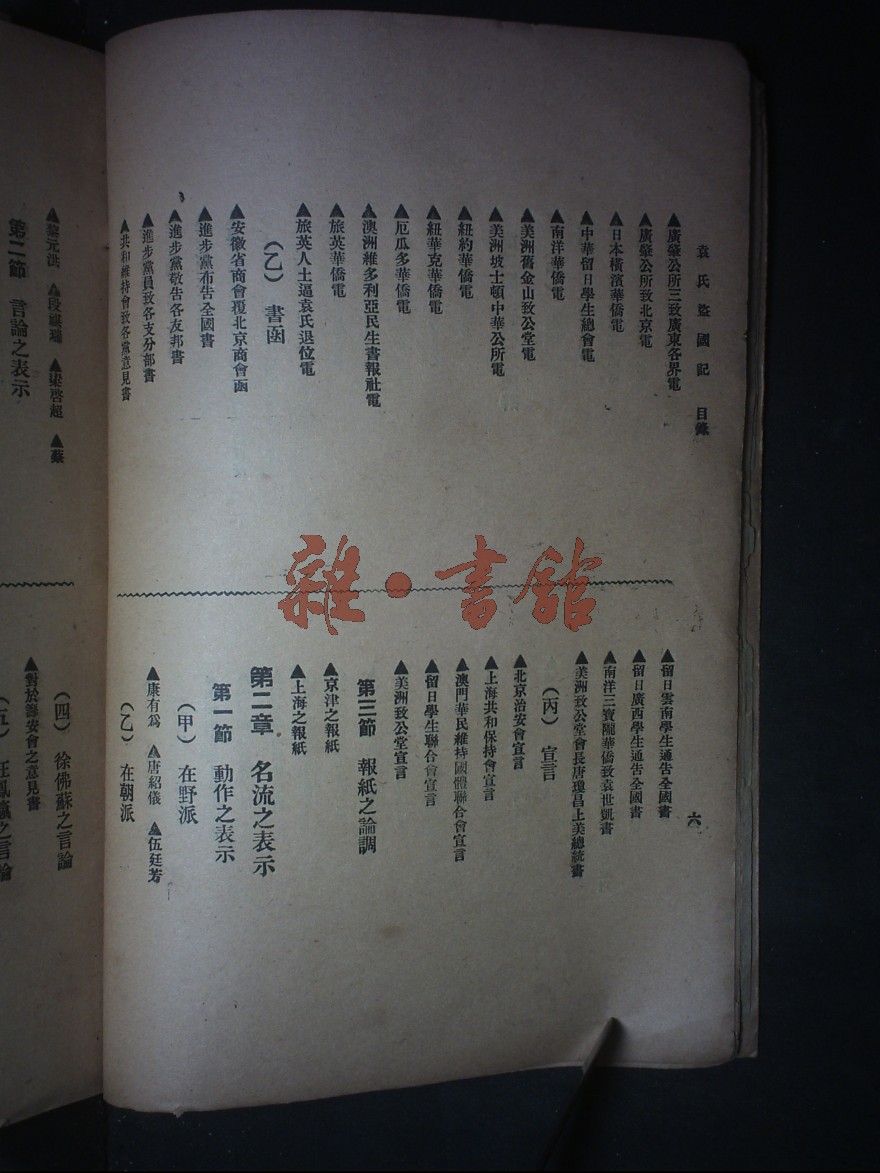 袁氏盜國記　目錄
六
▲廣肇公所三致廣東各界電
▲廣肇公所致北京電
▲日本橫濱華僑電
▲中華留日學生總會電
▲南洋華僑電
▲美洲舊金山致公堂電
▲美洲坡士頓中華公所電
▲紐約華僑電
▲紐華克華僑電
▲厄瓜多華僑電
▲澳洲維多利亞民生書報社電
▲旅英華僑電
▲旅英人士逼袁氏退位電
（乙）　書函
▲安徽省商會覆北京商會函
▲進步黨布告全國書
▲進步黨敬告各友邦書
▲進步黨員致各支分部書
▲共和維持會致各黨意見書
▲留日雲南學生通告全國書
▲留日廣西學生通告全國書
▲南洋三寶隴華僑致袁世凱書
▲美洲致公堂會長唐瓊昌上美總統書
（丙）　宣言
▲北京治安會宣言
▲上海共和保持會宣言
▲澳門華民維持國體聯合會宣言
▲留日學生聯合會宣言
▲美洲致公堂宣言
第三節　報紙之論調
▲京津之報紙
▲上海之報紙
第二章　名流之表示
第一節　動作之表示
（甲）　在野派
▲康有爲　▲唐紹儀　▲伍廷芳
（乙）　在朝派
▲黎元洪　▲段祺瑞　▲梁啓超　▲蔡
第二節　言論之表示
（四）　徐佛蘇之言論
▲對於籌安會之意見書
（五）　汪鳳瀛之言論
雜·書館